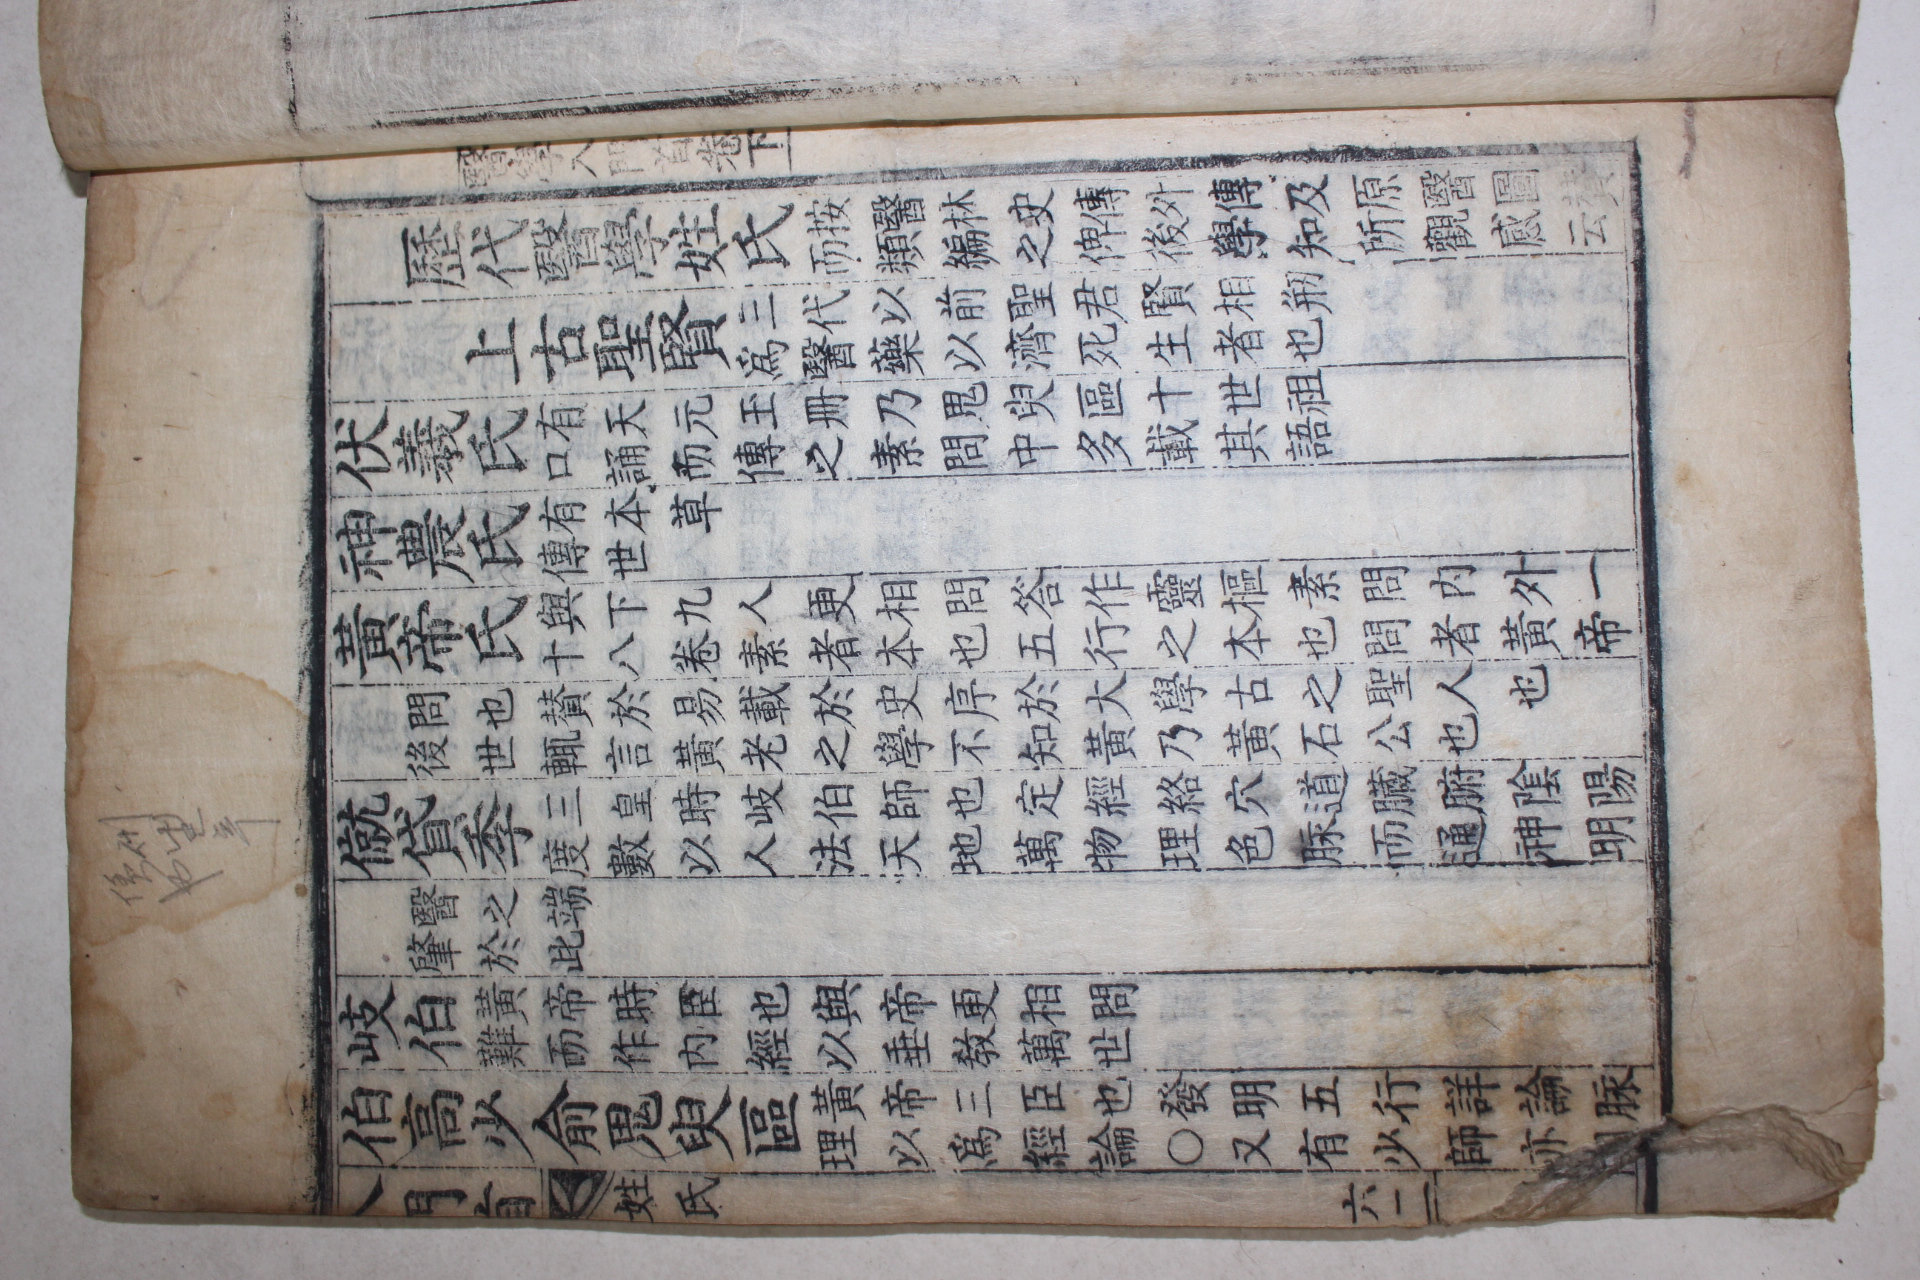 醫學入門首卷下
歷代醫學姓氏
按醫林史傳外傳及原醫圖贊
而類編之俾後學知所觀感云
上古聖賢
三代以前聖君賢相刱
爲醫藥以濟死生者也
伏羲氏
有天元玉冊乃鬼臾區十世祖
口誦而傳之素問中多載其語
神農氏
有本草
傳世
黃帝氏
與下九人更相問答作靈樞素問內外一
十八卷素者本也五行之本也問者黃帝
問也贊於易載於史序於大學古之聖人也
後世輒言黃老之學不知黃乃黃石公也
僦貸季
三皇時岐伯師也定經絡穴道臟腑陰陽
度數以人法天地萬物理色脉而通神明
醫之端
肇於此
岐伯
黃帝時臣也與帝更相問
難而作內經以垂敎萬世
伯高少俞鬼臾區
黃帝三臣也發明五行詳論脉
理以爲經論○又有少師亦
入門首
姓氏
六二